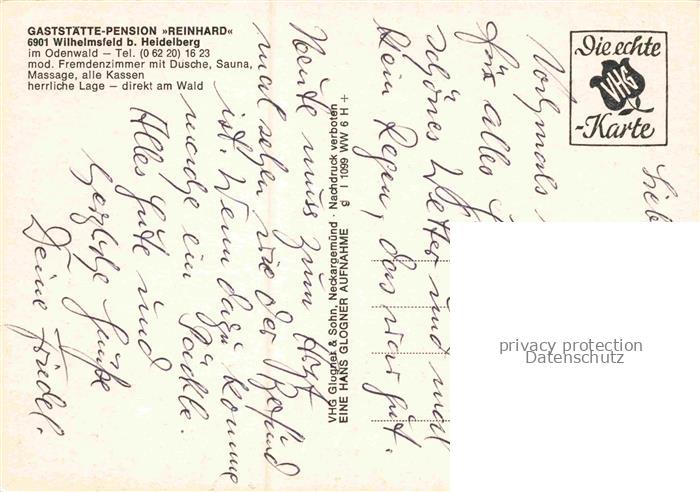 GASTSTÄTTE-PENSION »REINHARD«
6901 Wilhelmsfeld b. Heidelberg
im Odenwald – Tel. (0 62 20) 16 23
mod. Fremdenzimmer mit Dusche, Sauna,
Massage, alle Kassen
herrliche Lage – direkt am Wald
Die echte
VHG
-Karte
Nochmals
für alles
schönes Wetter und mal
kein Regen, das war gut.
Heute muss zum Arzt
mal sehen wie der Befund
ist. Wenn dazu komme
mache ein Päckle.
Alles Gute und
herzliche Grüße
Deine Friedel.
VHG Glogner & Sohn, Neckargemünd · Nachdruck verboten
EINE HANS GLOGNER AUFNAHME g I 1099 WW 6 H +
privacy protection
Datenschutz